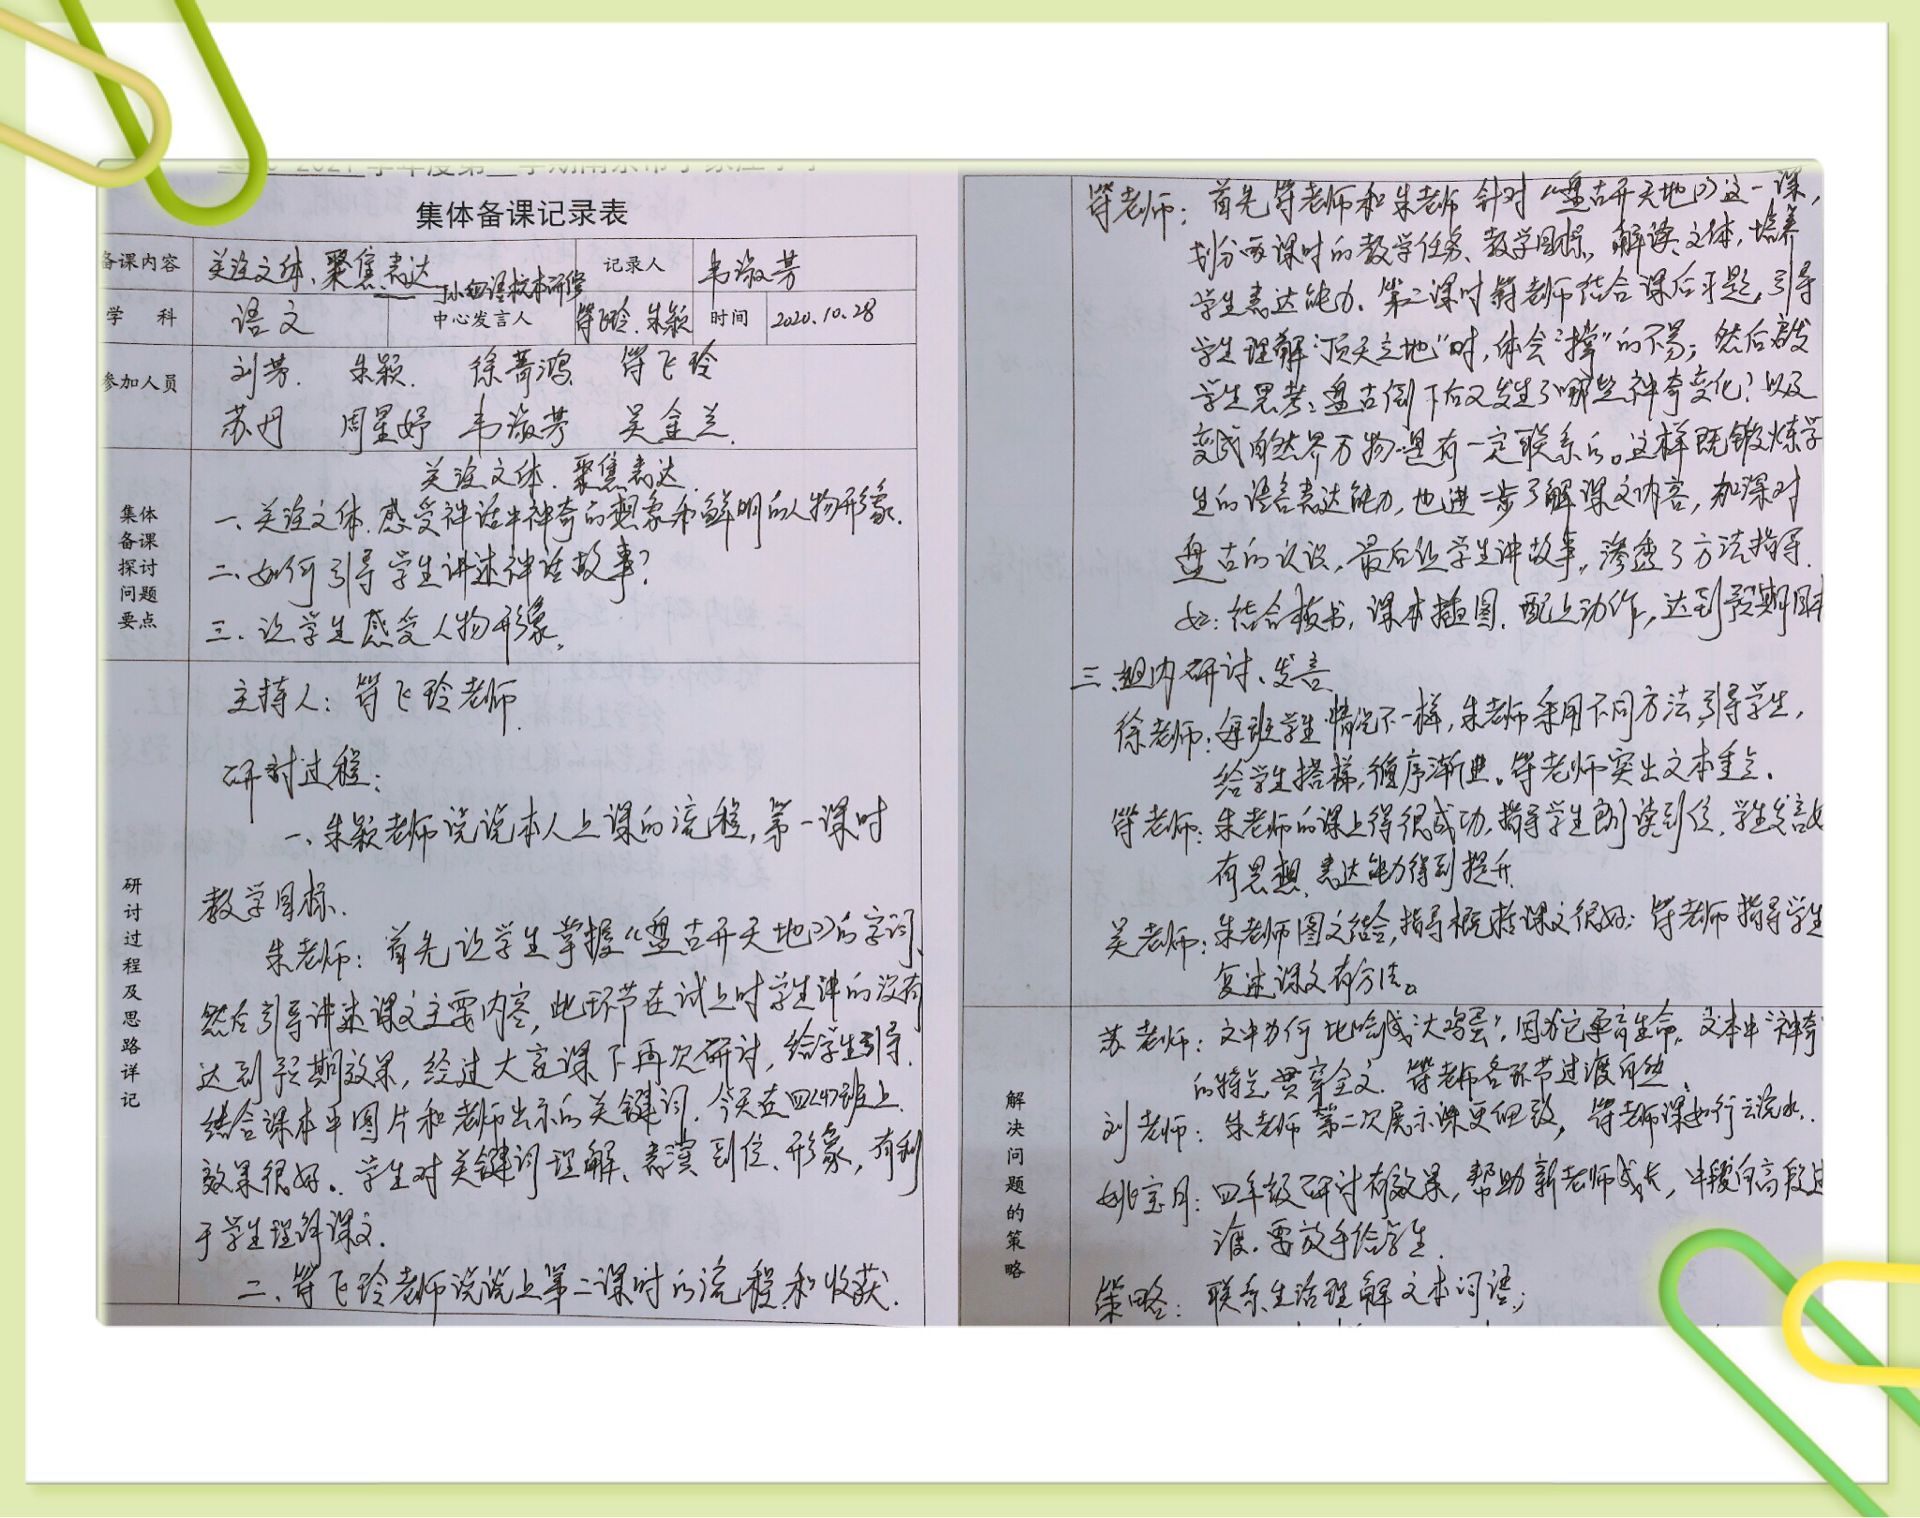 集体备课记录表
备课内容 关注文体、聚焦表达 小四语校本研修 记录人 韦淑芳
学 科 语文 中心发言人 符飞玲、朱颖 时间 2020.10.28
参加人员 刘芳、朱颖、徐菁鸿、符飞玲
苏丹 周星妤 韦淑芳 吴金兰
集体备课探讨问题要点
关注文体、聚焦表达
一、关注文体,感受神话中神奇的想象和鲜明的人物形象。
二、如何引导学生讲述神话故事?
三、让学生感受人物形象。
研讨过程及思路详记
主持人:符飞玲老师
研讨过程:
一、朱颖老师说说本人上课的流程,第一课时
教学目标。
朱老师:首先让学生掌握《盘古开天地》的字词、
然后引导讲述课文主要内容,此环节在试上时学生讲的没有
达到预期效果,经过大家课下再次研讨,给学生引导,
结合课本中图片和老师出示的关键词,今天在四(4)班上
效果很好。学生对关键词理解、表演到位、形象,有利
于学生理解课文。
二、符飞玲老师说说上第二课时的流程和收获。
符老师:首先符老师和朱老师针对《盘古开天地》这一课,
划分两课时的教学任务、教学目标,解读文体,培养
学生表达能力。第二课时符老师结合课后习题,引导
学生理解“顶天立地”时,体会“撑”的不易;然后启发
学生思考:盘古倒下后又发生了哪些神奇变化?以及
变成自然界万物是有一定联系的。这样既锻炼学
生的语言表达能力,也进一步了解课文内容,加深对
盘古的认识,最后让学生讲故事,渗透了方法指导。
如:结合板书,课本插图,配上动作,达到预期目标
三、组内研讨、发言
徐老师:每班学生情况不一样,朱老师采用不同方法引导学生,
给学生搭梯,循序渐进。符老师突出文本重点。
符老师:朱老师的课上得很成功,指导学生朗读到位,学生发言
有思想,表达能力得到提升。
吴老师:朱老师图文结合,指导概括课文很好;符老师指导学生
复述课文有方法。
解决问题的策略
苏老师:文中为何比喻成“大鸡蛋”,因为它孕育生命。文本中“神奇
的特点贯穿全文。符老师各环节过渡自然。
刘老师:朱老师第二次展示课更细致,符老师课如行云流水。
姚宝月:四年级研讨有效果,帮助新老师成长,中段向高段过
渡,要放手给学生。
策略:联系生活理解文本词语;